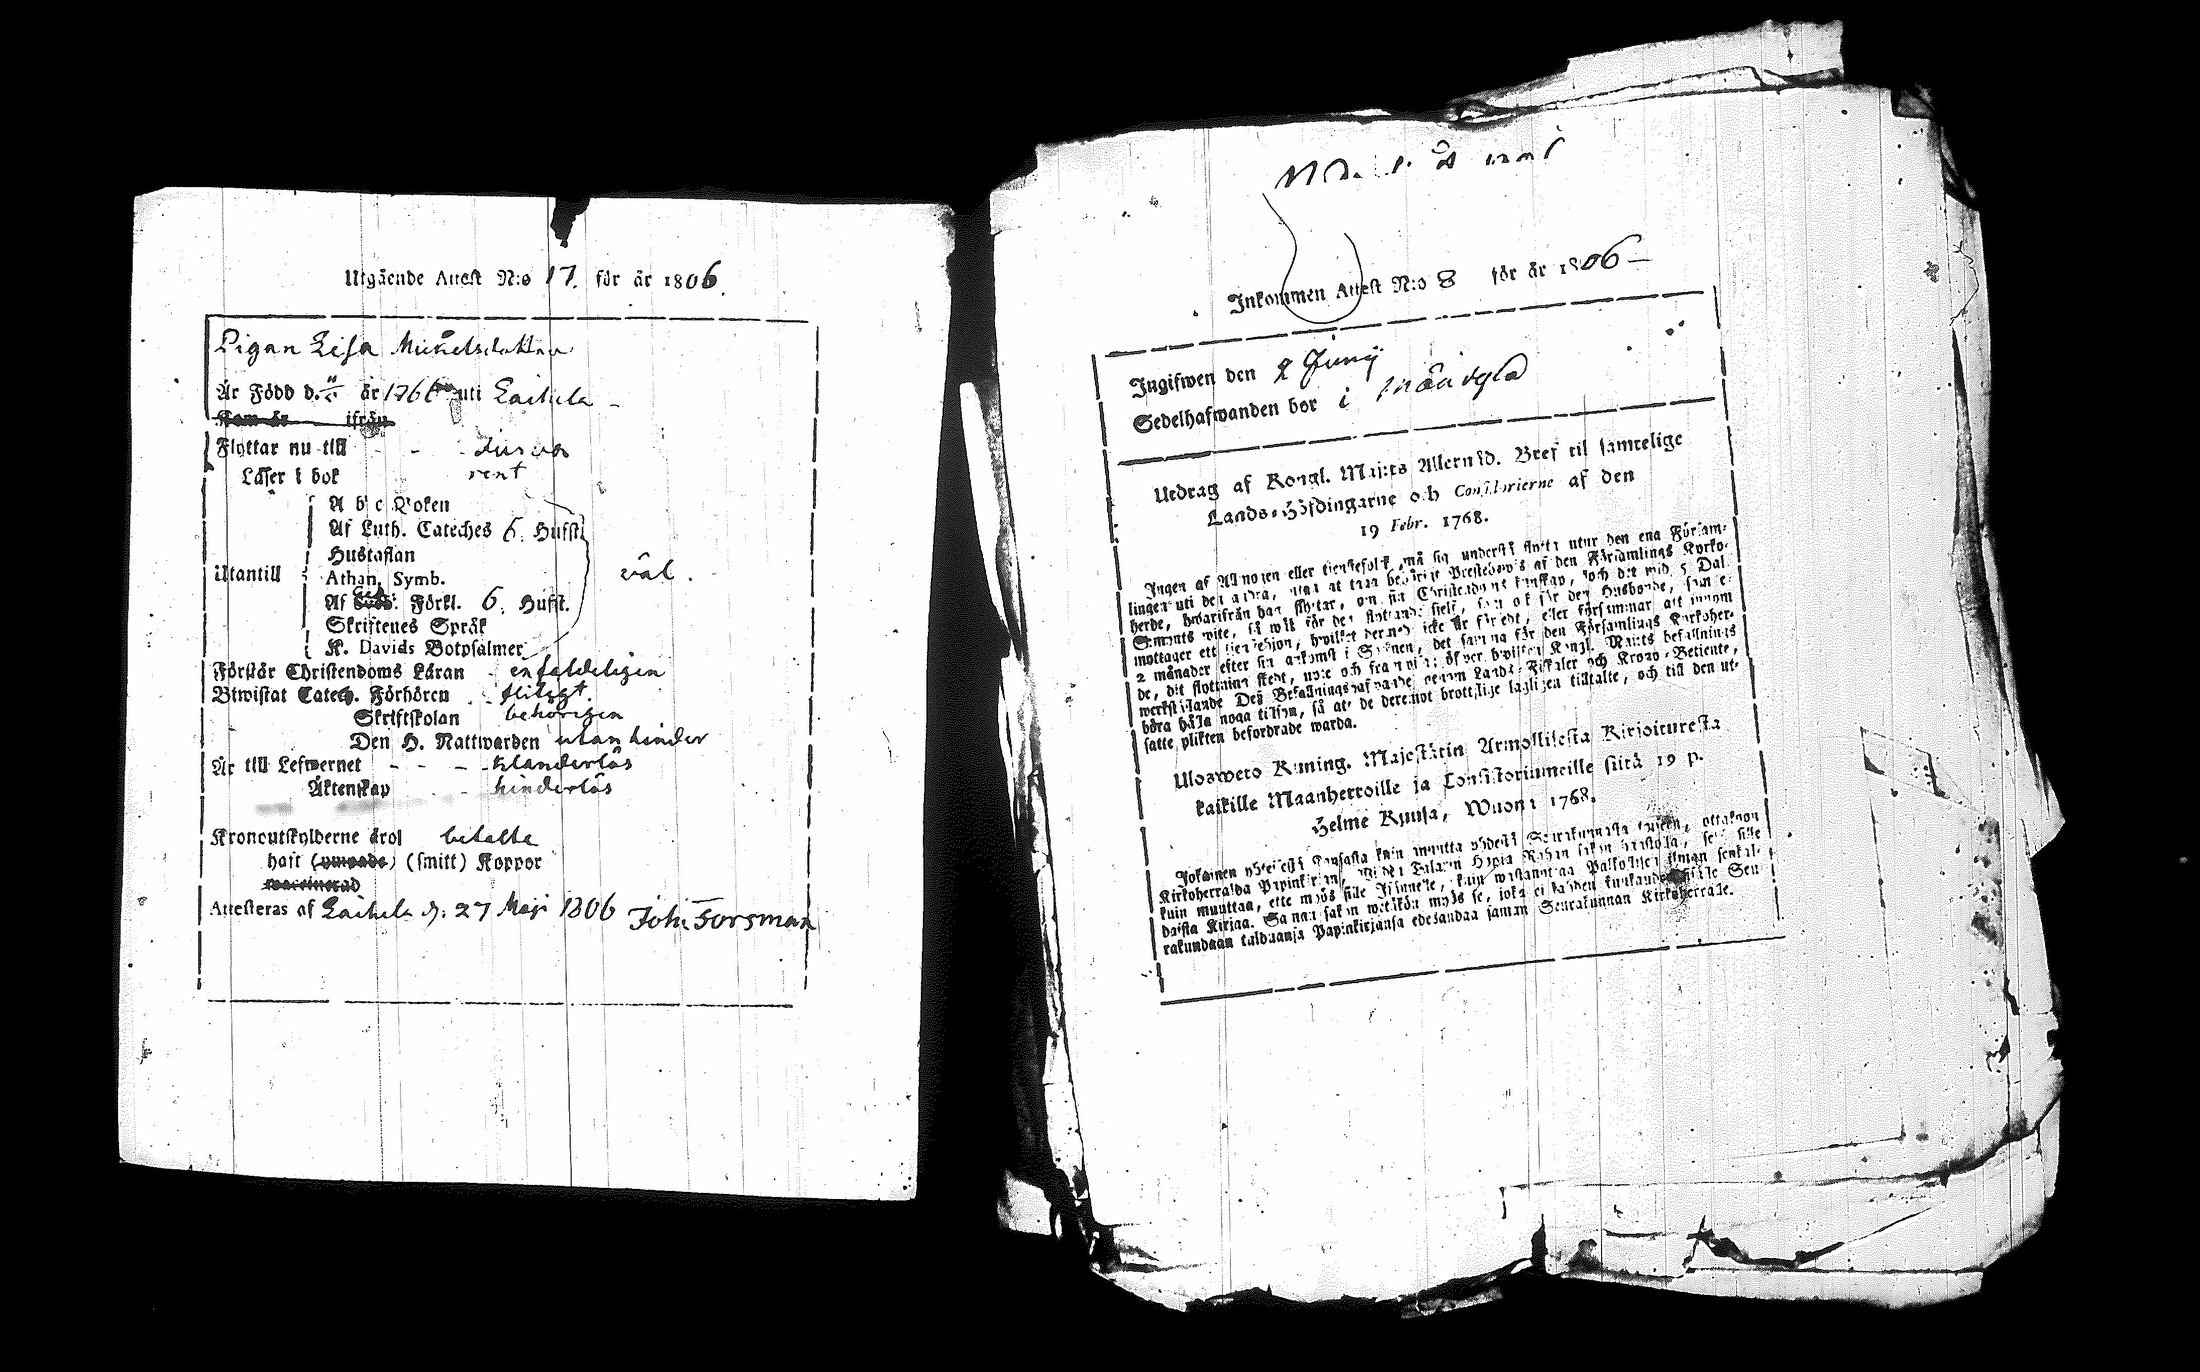 Utgående Attest N:o 17. för år 1806.
Pigan Lisa Michelsdotter
Är Född d. år 1766 uti Laihela
Kom år ifrån
Flyttar nu till - - -
Läser i bok rent
A b c Boken
Af Luth. Cateches 6. Hufst.
Hustaflan
Utantill Athan. Symb. väl.
Af Förkl. 6. Hufst.
Skriftenes Språk
K. Davids Botpsalmer
Förstår Christendoms Läran - enfaldeligen
Biwistat Catech. Förhören - - flitigt.
Skriftskolan behörigen
Den H. Nattwarden utan hinder
Är till Lefwernet - - - klanderlös
Äktenskap hinderlös
Kronoutskylderne äro betalte
haft (ympade) (smitt) Koppor
waccinerad
Attesteras af Laihela d: 27 Maji 1806 Joh: Forsman
Inkommen Attest N:o 8 för år 1806 -
Ingifwen den 2 Junij
Sedelhafwanden bor i
Utdrag af Kongl. Maj:ts Allernåd. Bref til samtelige
Lands-Höfdingarne och Consistorierne af den
19 Febr. 1768.
Ingen af Allmogen eller tienstefolk må sig understå flytta utur den ena Försam-
lingen uti den andra, utan at taga behörigt Prestebewis af den Församlings Kyrko-
herde, hwarifrån han flyttar, om sin Christendoms kunskap, och det wid 5 Dal.
S:mynts wite, så wäl för den flyttande sielf, som ok för den Husbonde, som e-
mottager ett tienstehion, hwilket dermed icke är försedt, eller försummar att innom
2 månader efter sin ankomst i Soknen, det samma för den Församlings Kyrkoher-
de, dit flyttning skedt, upte och framwisa; öfwer hwilken Kongl. Maj:ts befallnings
werkställande Dess Befallningshafwande genom Lands-Fiskaler och Krono-Betiente,
böra hålla noga tilsyn, så att de deremot brottslige lagligen tilltalte, och till den ut-
satte plikten befordrade warda.
Ulosweto Kuning. Majestetin Armollisesta Kirjoituresta
kaikille Maanherroille ja Consistoriumeille siitä 19 p.
Helme Kuusa, Wuonn: 1768.
Jokainen yhteisestä Kansasta kuin muutta yhdestä Seurakunnasta toiseen, ottakoon
Kirkoherralda Papinkirjan, wijden Talarin Hopia Rahan sakon haastolla, sekä sille
kuin muuttaa, ette myös sille Isännelle, kuin wastanottaa Palkollisen ilman senkal-
daista Kirjaa. Saman sakon wetäkön myös se, joka ei kahden kuukauden sisälle Seu-
rakundaan tulduansa Papinkirjansa edesandaa saman Seurakunnan Kirkoherralle.